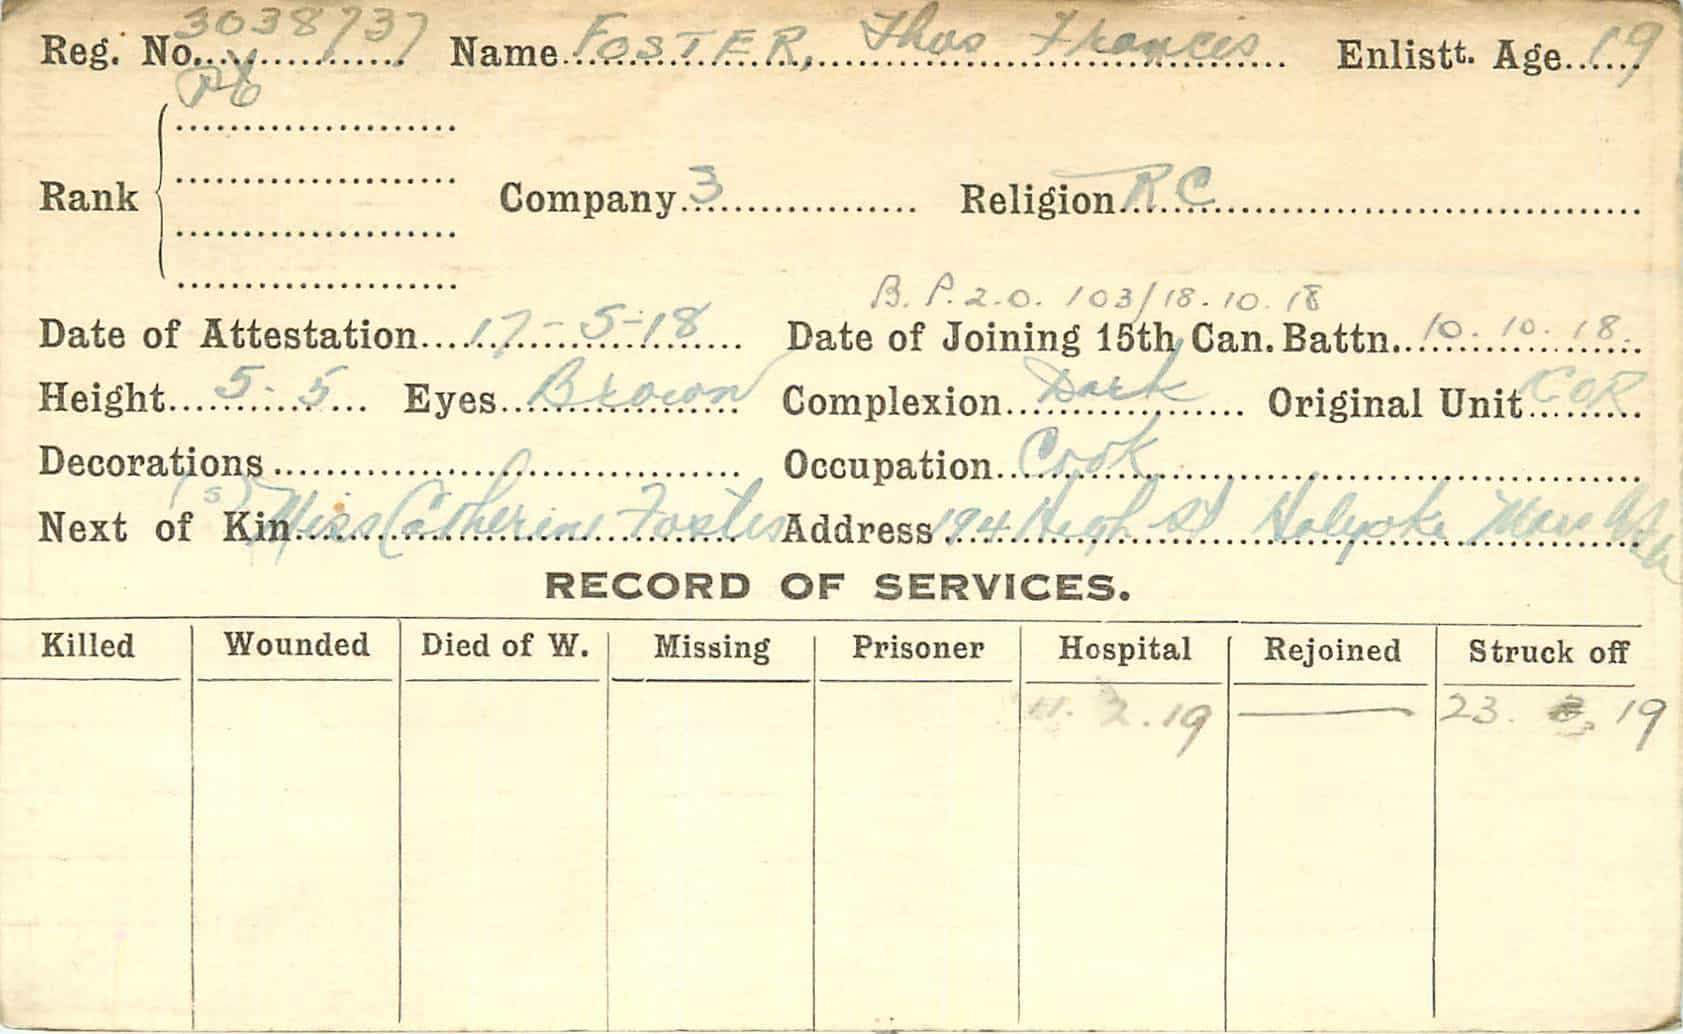 Reg. No. 3038737 Name FOSTER, Thos Francis Enlistt. Age 19
Rank Company 3 Religion RC
B. P.2.0. 103/18.10.18
Date of Attestation 17-5-18 Date of Joining 15th Can. Battn. 10.10.18.
Height 5-5 Eyes Brown Complexion Dark Original Unit COR
Decorations Occupation Cook
Next of Kin (s) Miss Catherine Foster Address 194 High St Holyoke Mass
RECORD OF SERVICES.
Killed Wounded Died of W. Missing Prisoner Hospital Rejoined Struck off
2.19 — 23. 19